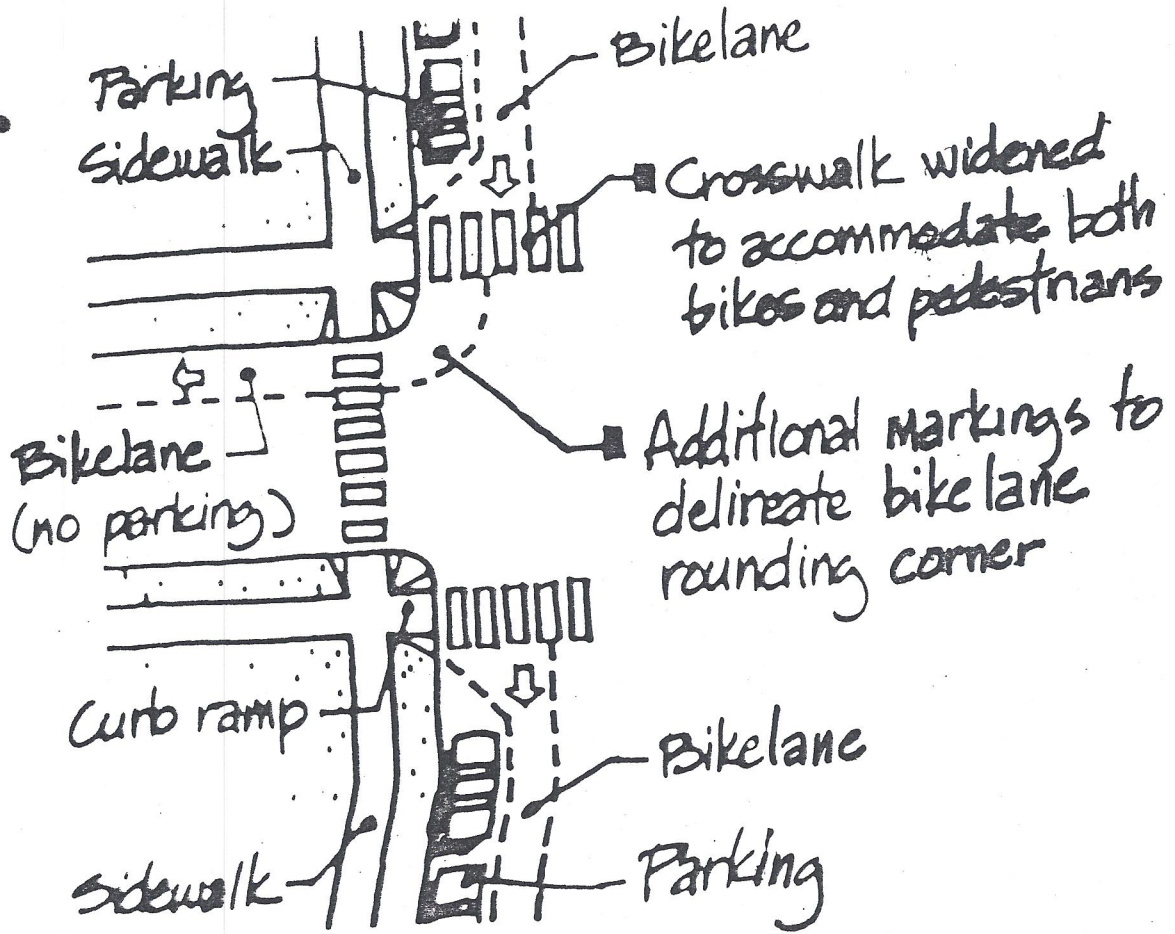 Bikelane
Parking
Sidewalk
Crosswalk widened
to accommodate both
bikes and pedestrians
Bikelane
(no parking)
Additional markings to
delineate bikelane
rounding corner
Curb ramp
Bikelane
Sidewalk
Parking